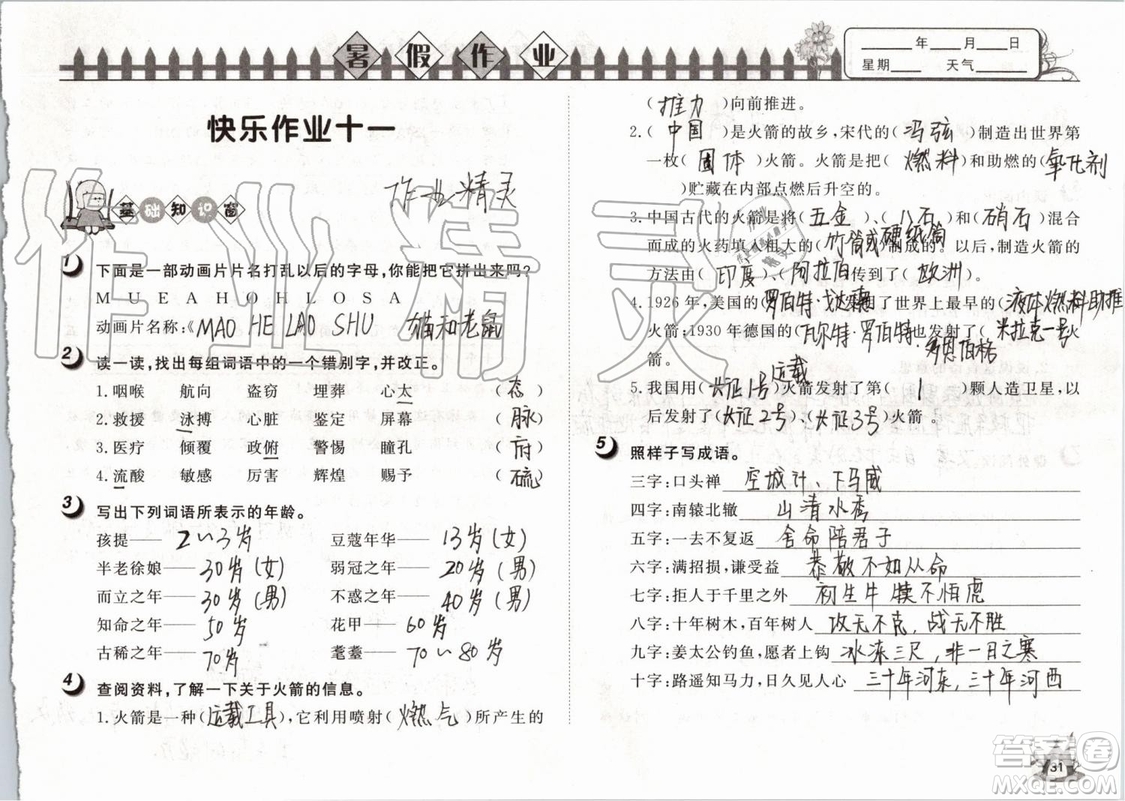 暑假作业
____年____月____日
星期____ 天气____
快乐作业十一
作业精灵
基础知识窗
1 下面是一部动画片片名打乱以后的字母,你能把它拼出来吗?
M U E A H O H L O S A
动画片名称:《MAO HE LAO SHU 猫和老鼠
2 读一读,找出每组词语中的一个错别字,并改正。
1.咽喉 航向 盗窃 埋葬 心太 (态)
2.救援 泳搏 心脏 鉴定 屏幕 (脉)
3.医疗 倾覆 政俯 警惕 瞳孔 (府)
4.流酸 敏感 厉害 辉煌 赐予 (硫)
3 写出下列词语所表示的年龄。
孩提——2~3岁 豆蔻年华——13岁(女)
半老徐娘——30岁(女) 弱冠之年——20岁(男)
而立之年——30岁(男) 不惑之年——40岁(男)
知命之年——50岁 花甲——60岁
古稀之年——70岁 耄耋——70~80岁
4 查阅资料,了解一下关于火箭的信息。
1.火箭是一种(运载工具),它利用喷射(燃气)所产生的
(推力)向前推进。
2.(中国)是火箭的故乡,宋代的(冯弦)制造出世界第
一枚(固体)火箭。火箭是把(燃料)和助燃的(氧化剂
)贮藏在内部点燃后升空的。
3.中国古代的火箭是将(五金)、(八石)和(硝石)混合
而成的火药填入粗大的(竹筒或硬纸筒)制成的。以后,制造火箭的
方法由(印度)、(阿拉伯)传到了(欧洲)。
4.1926年,美国的(罗伯特·戈达德)发明了世界上最早的(液体燃料助推)
火箭;1930年德国的(瓦尔特·罗伯特·多恩伯格)也发射了(米拉克一号)火
箭。
5.我国用(长征1号运载)火箭发射了第(1)颗人造卫星,以
后发射了(长征2号)、(长征3号)火箭。
5 照样子写成语。
三字:口头禅 空城计、下马威
四字:南辕北辙 山清水秀
五字:一去不复返 舍命陪君子
六字:满招损,谦受益 恭敬不如从命
七字:拒人于千里之外 初生牛犊不怕虎
八字:十年树木,百年树人 攻无不克,战无不胜
九字:姜太公钓鱼,愿者上钩 冰冻三尺,非一日之寒
十字:路遥知马力,日久见人心 三十年河东,三十年河西
31
答案圈
MXQE.COM